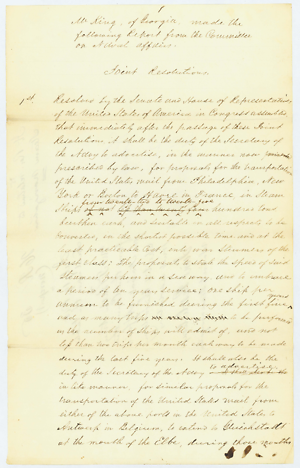 Mr King, of Georgia made the
following Report from the Committee
on Naval affairs.
Joint Resolutions
1st Resolved by the Senate and House of Representatives
of the United States of America in Congress assembled
that immediately after the passage of these Joint
Resolutions it shall be the duty of the Secretary of
the Navy to advertise, in the manner now
prescribed by law, for proposals for the transportation
of the United States mail from Philadelphia, New
York or Boston to Havre in France, in Steam
Ships
from twenty two to twenty five
hundred tons
burthen each, and
in the shortest possible time and at the
most practicable cost, into war Steamers of the
first class: The proposals to state the speed of said
Steamers
a period of ten years service: one Ship per
to be furnished during the first five years
each as many trips to be performed
as the number of Ships will admit of, but not
less than two trips per month each way to be made
during the last five years. It shall also be the
duty of the Secretary of the Navy to advertise
in like manner, for similar proposals for the
transportation of the United States mail from
either of the above ports in the United States to
Antwerp in Belgium, to extend to
at the mouth of the Elbe, during those months